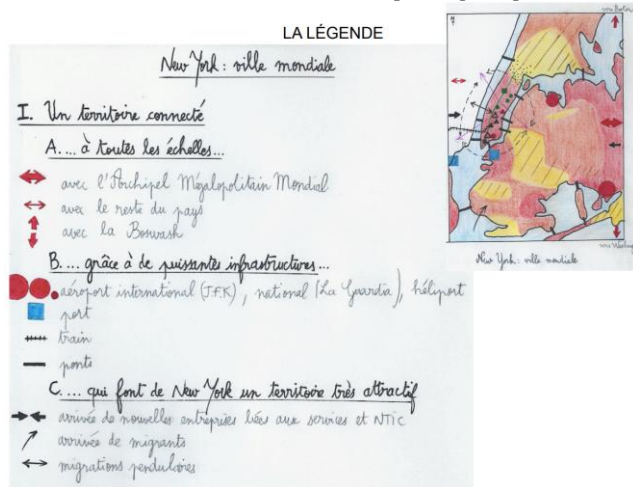 LA LÉGENDE
New York : ville mondiale
I. Un territoire connecté
A. ... à toutes les échelles...
avec l'Archipel Mégalopolitain Mondial
avec le reste du pays
avec la Boswash
B. ... grâce à de puissantes infrastructures...
aéroport international (J.F.K), national (La Guardia), héliport
port
train
ponts
C. ... qui font de New York un territoire très attractif
arrivée de nouvelles entreprises liées aux services et NTIC
arrivée de migrants
migrations pendulaires
New York : ville mondiale